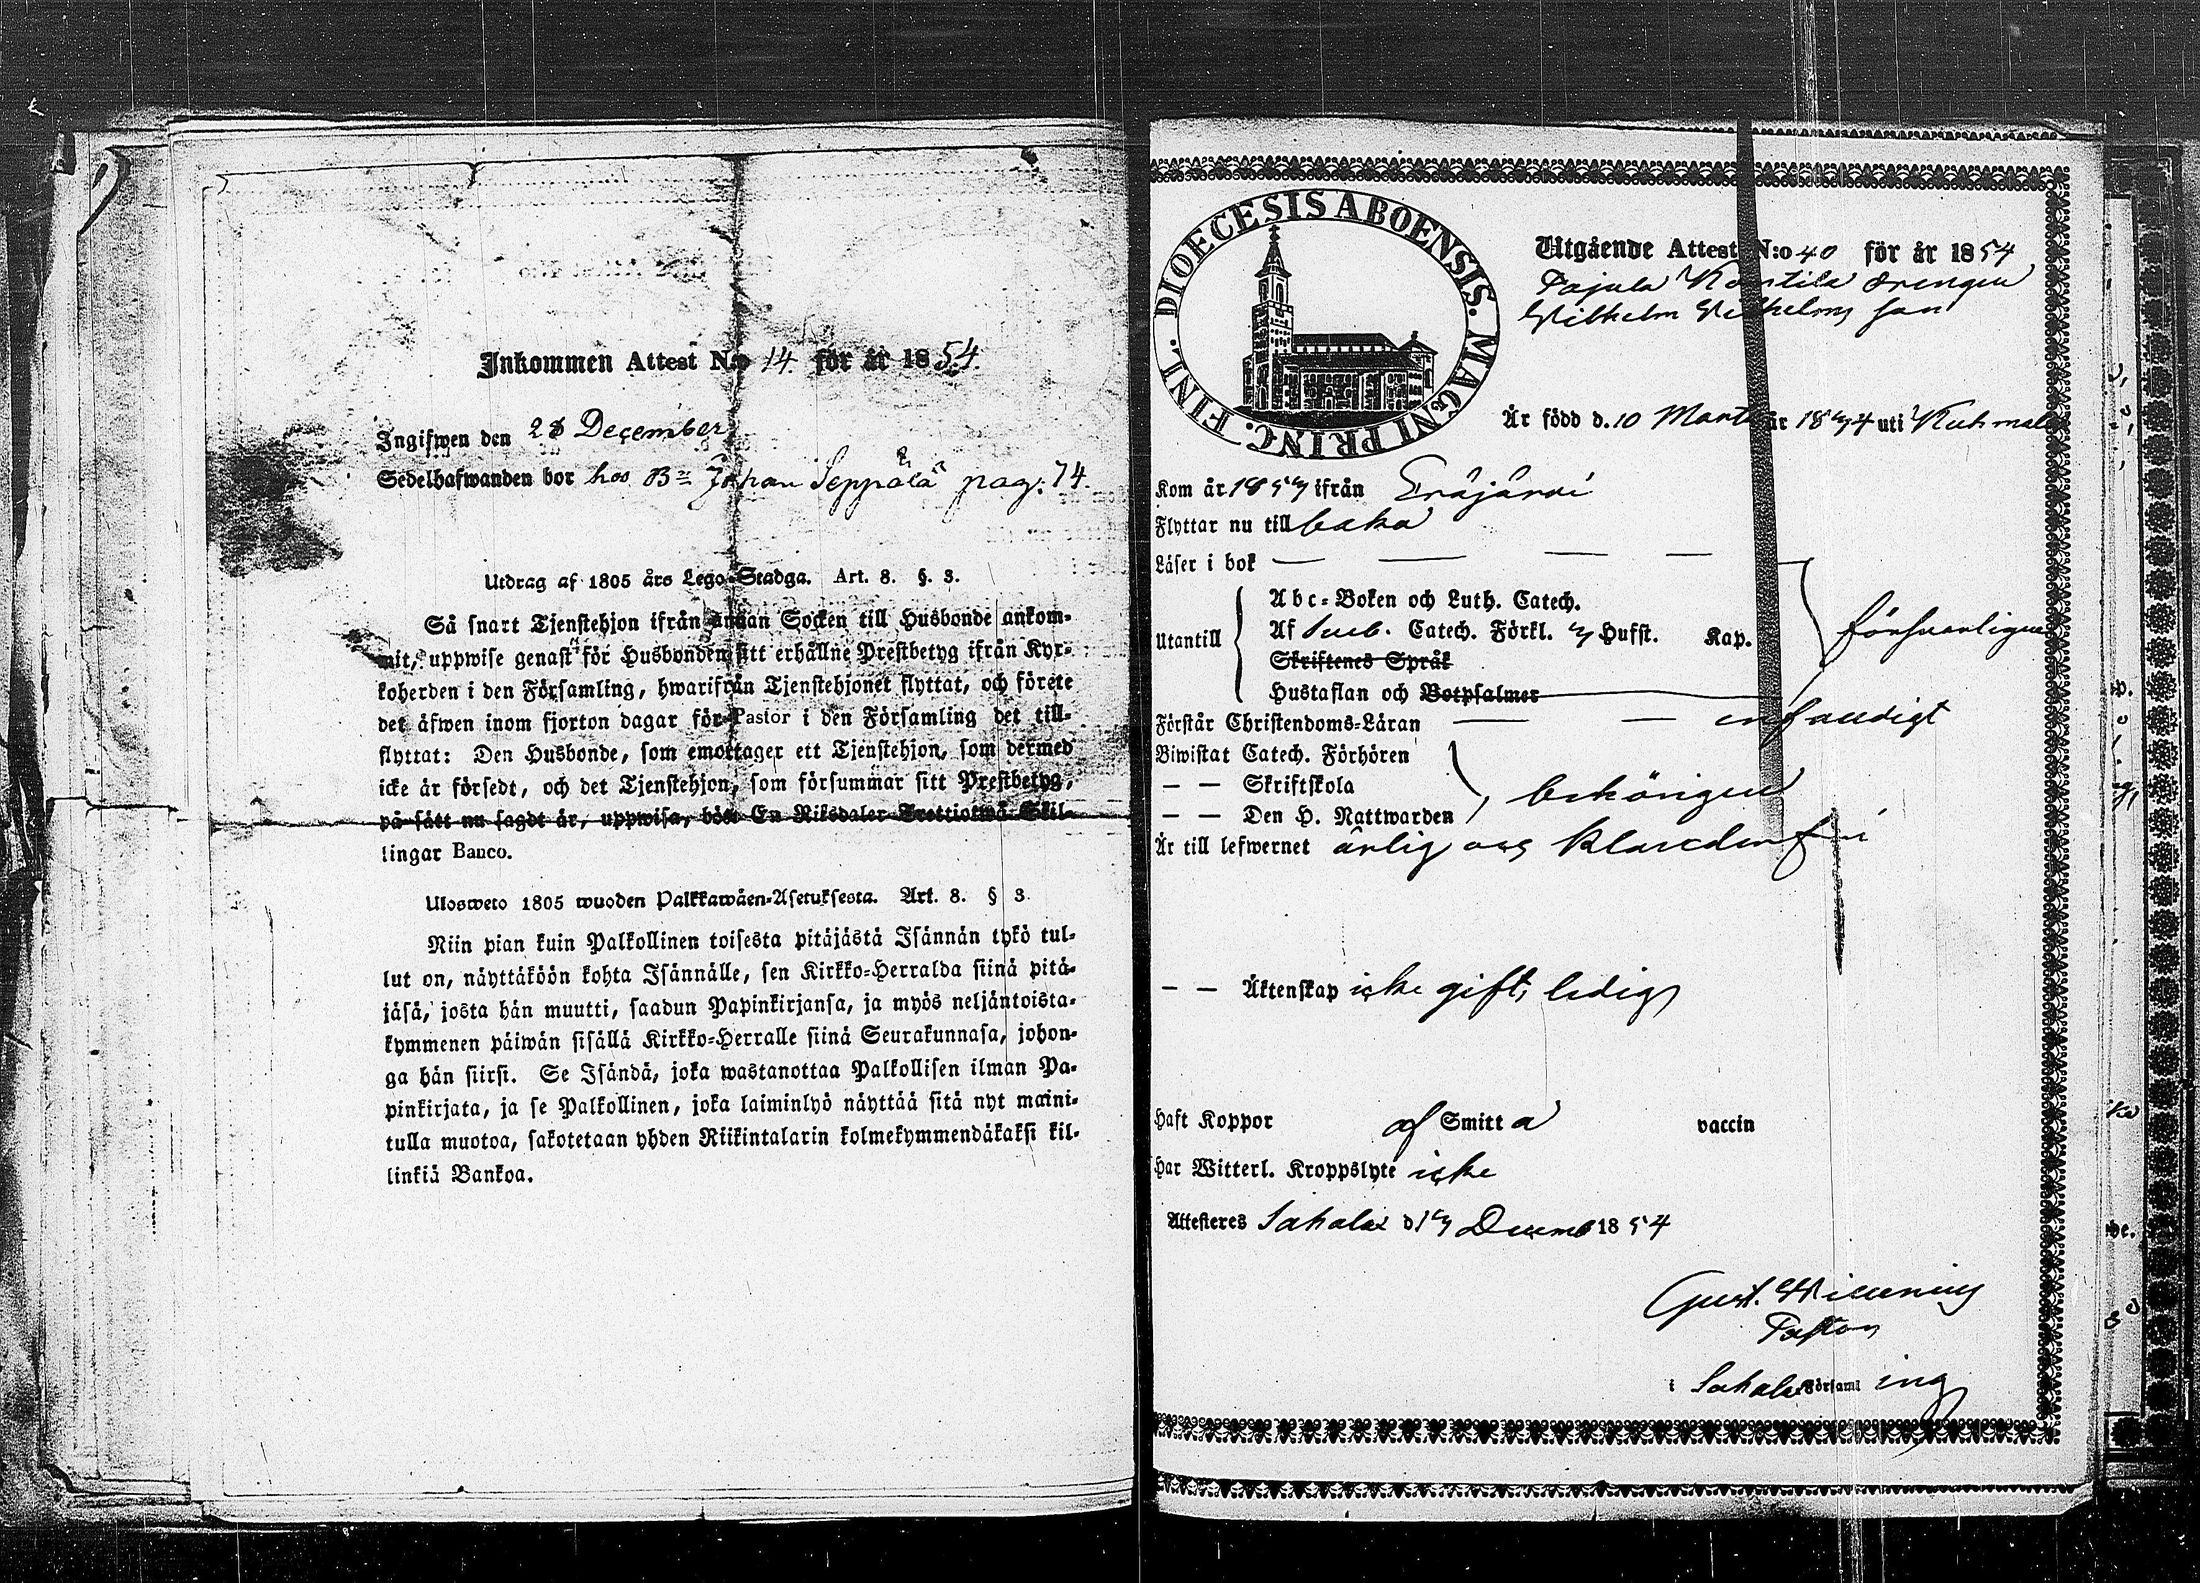 Inkommen Attest N:o 14 för år 1854.
Ingifwen den 28 December
Sedelhafwanden bor hos Bn Johan Seppälä pag: 74.
Utdrag af 1805 års Lego-Stadga. Art. 8. §. 3.
Så snart Tjenstehjon ifrån annan Socken till Husbonde ankom-
mit, uppwise genast för Husbonden sitt erhållne Prestbetyg ifrån Kyr-
koherden i den Församling, hwarifrån Tjenstehjonet flyttat, och förete
det äfwen inom fjorton dagar för Pastor i den Församling det till-
flyttat: Den Husbonde, som emottager ett Tjenstehjon, som dermed
icke är försedt, och det Tjenstehjon, som försummar sitt Prestbetyg,
på sätt nu sagdt är, uppwisa, böte En Riksdaler Trettiotwå Skil-
lingar Banco.
Ulosweto 1805 wuoden Palkkawäen-Asetuksesta. Art. 8. § 3.
Niin pian kuin Palkollinen toisesta pitäjästä Isännän tykö tul-
lut on, näyttäköön kohta Isännälle, sen Kirkko-Herralda siinä pitä-
jäsä, josta hän muutti, saadun Papinkirjansa, ja myös neljäntoista-
kymmenen päiwän sisällä Kirkko-Herralle siinä Seurakunnasa, johon-
ga hän siirsi. Se Isändä, joka wastanottaa Palkollisen ilman Pa-
pinkirjata, ja se Palkollinen, joka laiminlyö näyttää sitä nyt maini-
tulla muotoa, sakotetaan yhden Riikintalarin kolmekymmendäkaksi kil-
linkiä Bankoa.
DIOECESIS ABOENSIS. MAGNI PRINC. FINL.
Utgående Attest N:o 40 för år 1854
Pajula Konttila drengen
Wilhelm Wilhelms son
Är född d. 10 Marti år 18 uti Kuhmal
Kom år 185 ifrån Eräjärvi
Flyttar nu till baka
Läser i bok — — — —
Abc-Boken och Luth. Catech.
Utantill Af Sveb. Catech. Förkl. Hufst. Kap. försvarligen
Skriftenes Språk
Hustaflan och Botpsalmer
Förstår Christendoms-Läran — — enfaldigt
Biwistat Catech. Förhören
— — Skriftskola behörigen
— — Den H. Nattwarden
Är till lefwernet ärlig och klanderfri
— — Äktenskap icke gift, ledig
Haft Koppor af Smitt a vaccin
Har Witterl. Kroppslyte icke
Attesteres Sahalax d 1854
Gust.
Pastor
i Sahalax Församl ing